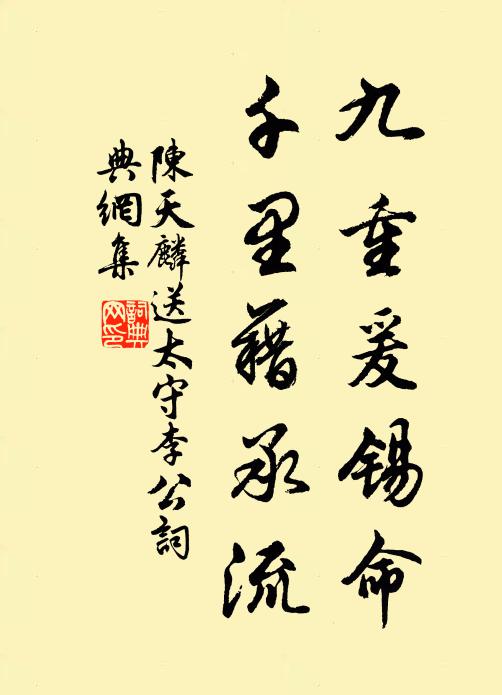 九重爰锡命
千里藉承流
陳天麟送太守李公詞
典網集
詞典网印